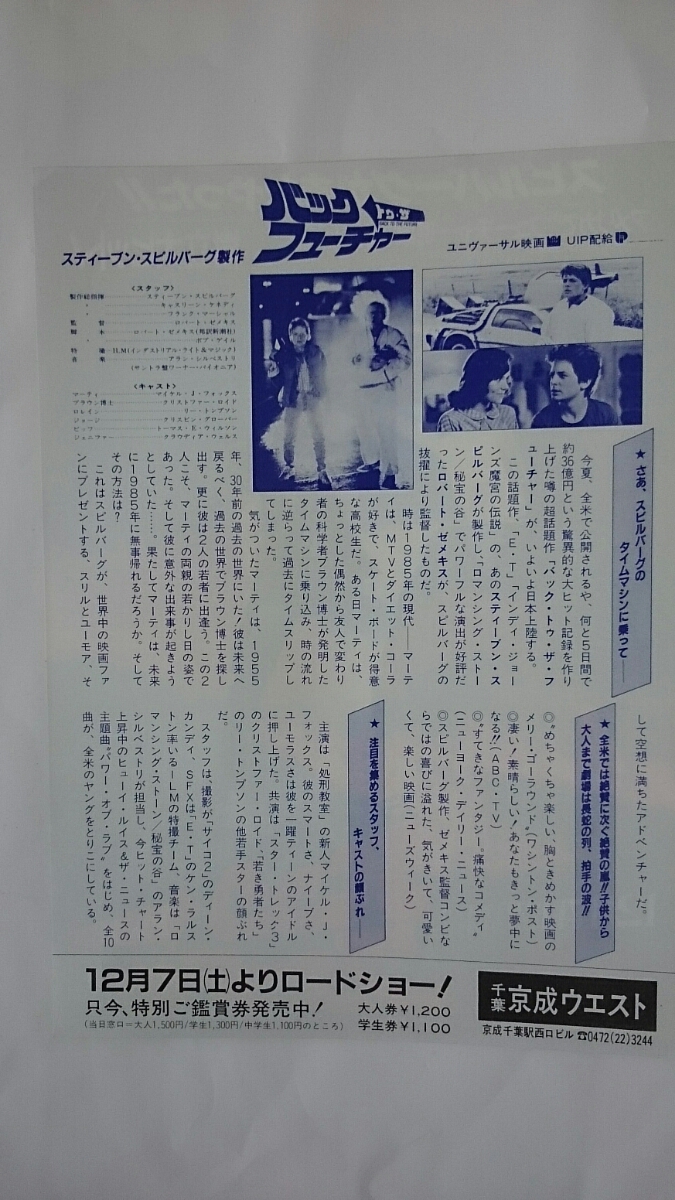 バック トゥ・ザ
BACK TO THE FUTURE
フューチャー
スティーブン・スピルバーグ製作
ユニヴァーサル映画 UIP配給
〈スタッフ〉
製作総指揮 スティーブン・スピルバーグ
〃 キャスリーン・ケネディ
〃 フランク・マーシャル
監督 ロバート・ゼメキス
脚本 ロバート・ゼメキス(邦訳新潮社)
〃 ボブ・ゲイル
特撮 ILM(インダストリアル・ライト&マジック)
音楽 アラン・シルベストリ
(サントラ盤ワーナー・パイオニア)
〈キャスト〉
マーティ マイケル・J・フォックス
ブラウン博士 クリストファー・ロイド
ロレイン リー・トンプソン
ジョージ クリスピン・グローバー
ビッフ トーマス・F・ウィルソン
ジェニファー クラウディア・ウェルス
★さあ、スピルバーグの
タイムマシンに乗って——
今夏、全米で公開されるや、何と5日間で
約36億円という驚異的な大ヒット記録を作り
上げた噂の超話題作「バック・トゥ・ザ・フ
ューチャー」が、いよいよ日本上陸する。
この話題作、「E・T」「インディ・ジョー
ンズ魔宮の伝説」の、あのスティーブン・ス
ピルバーグが製作し、「ロマンシング・ストー
ン/秘宝の谷」でパワーフルな演出が好評だ
ったロバート・ゼメキスが、スピルバーグの
抜擢により監督したものだ。
時は1985年の現代——マーテ
ィは、MTVとダイエット・コーラ
が好きで、スケート・ボードが得意
な高校生だ。ある日マーティは、
ちょっとした偶然から友人で変わり
者の科学者ブラウン博士が発明した
タイムマシンに乗り込み、時の流れ
に逆らって過去にタイムスリップし
てしまった。
気がついたマーティは、1955
年、30年前の過去の世界にいた!彼は未来へ
戻るべく、過去の世界でブラウン博士を探し
出す。更に彼は2人の若者に出逢う。この2
人こそ、マーティの両親の若かりし日の姿で
あった。そして彼に意外な出来事が起きよう
としていた……。果たしてマーティは、未来
に1985年に無事帰れるだろうか。そして
その方法は?
これはスピルバーグが、世界中の映画ファ
ンにプレゼントする、スリルとユーモア、そ
して空想に満ちたアドベンチャーだ。
★全米では絶賛に次ぐ絶賛の嵐!!子供から
大人まで劇場は長蛇の列、拍手の波!!
◎"めちゃくちゃ楽しい、胸ときめかす映画の
メリー・ゴーラウンド"(ワシントン・ポスト)
◎凄い!素晴らしい!あなたもきっと夢中に
なる!!(ABC・TV)
◎"すてきなファンタジー。痛快なコメディ"
(ニューヨーク・デイリー・ニュース)
◎スピルバーグ製作、ゼメキス監督コンビな
らではの喜びに溢れた、気がきいて、可愛い
くて、楽しい映画(ニューズウィーク)
★注目を集めるスタッフ、
キャストの顔ぶれ——
主演は「処刑教室」の新人マイケル・J・
フォックス。彼のスマートさ、ナイーブさ、
ユーモラスさは彼を一躍ティーンのアイドル
に押し上げた。共演は「スター・トレック3」
のクリストファー・ロイド、「若き勇者たち」
のリー・トンプソンの他若手スターの顔ぶれ
だ。
スタッフは、撮影が「サイコ2」のディーン・
カンディ、SFXは「E・T」のケン・ラルス
トン率いるILMの特撮チーム、音楽は「ロ
マンシング・ストーン/秘宝の谷」のアラン・
シルベストリが担当し、今ヒット・チャート
上昇中のヒューイ・ルイス&ザ・ニュースの
主題曲"パワー・オブ・ラブ"をはじめ、全10
曲が、全米のヤングをとりこにしている。
12月7日(土)よりロードショー!
只今、特別ご鑑賞券発売中! 大人券¥1,200
学生券¥1,100
(当日窓口=大人1,500円/学生1,300円/中学生1,100円のところ)
千葉 京成ウエスト
京成千葉駅西口ビル ☎0472(22)3244